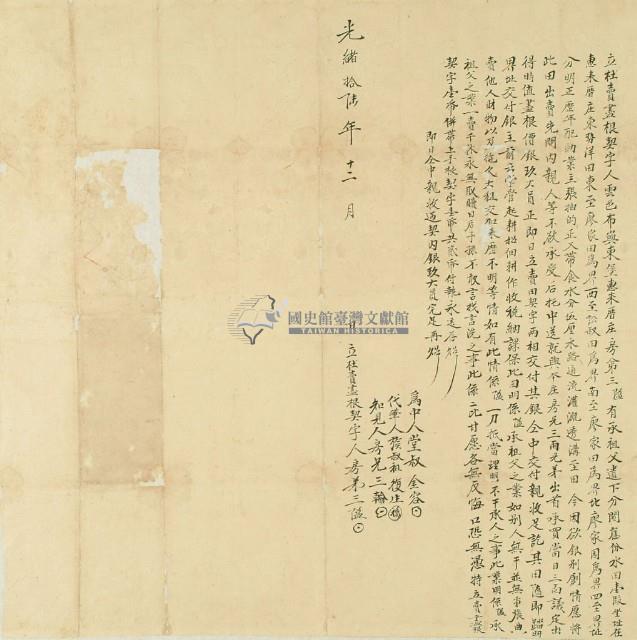 立杜賣盡根契字人雲邑布與東堡惠來厝庄房弟三隘有承祖父遺下分鬮舊份水田壹段坐址在
惠來厝庄東勢洋田東至廖家田為界西至 叔田為界南至廖家田為界北廖家田為界四至界址
分明正歷年配納業主張抽的正又帶食水分伍厘水路通流灌溉透溝至田今因欲銀別創情愿將
此田出賣先問內親人等不欲承受后托中送就與本庄房兄三兩兄弟出首承買當日三面議定出
得時值盡根價銀玖大員正即日立賣田契字兩相交付其銀仝中交付親收足訖其田隨即踏明
界址交付銀主前去掌管起耕招佃耕作收稅納課保此田明係隘承祖父之業如別人無干並無重張典
賣他人財物以及拖欠大租交加來歷不明等情如有此情係隘一力抵當理明不干承人之事此業明係隘承
祖父之業一賣千休永無取贖日后子孫不敢言找言洗之事此係二比甘愿各無反悔口恐無憑特立賣盡根
契字壹帋併帶上手根契字壹帋共貳帋付執永遠存炤
即日仝中親收過契內銀玖大員完足再炤
為中人堂叔 全谷
代筆人 叔祖復生
知見人房兄三輪
光緒拾陸年十二月 日立杜賣盡根契字人房弟三隘
國史館臺灣文獻館
TAIWAN HISTORICA